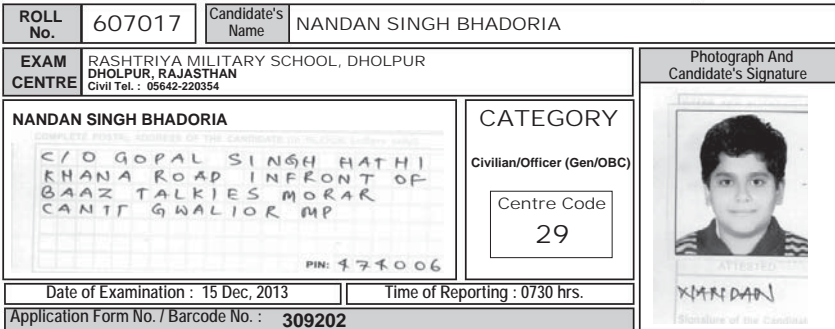 ROLL No. 607017 Candidate's Name NANDAN SINGH BHADORIA
EXAM CENTRE RASHTRIYA MILITARY SCHOOL, DHOLPUR
DHOLPUR, RAJASTHAN
Civil Tel. : 05642-220354
Photograph And
Candidate's Signature
NANDAN SINGH BHADORIA
COMPLETE POSTAL ADDRESS OF THE CANDIDATE
C/O GOPAL SINGH HATHI
KHANA ROAD INFRONT OF
BAAZ TALKIES MORAR
CANTT GWALIOR MP
PIN: 474006
CATEGORY
Civilian/Officer (Gen/OBC)
Centre Code
29
ATTESTED
NANDAN
Signature of the Candidate
Date of Examination : 15 Dec, 2013 Time of Reporting : 0730 hrs.
Application Form No. / Barcode No. : 309202